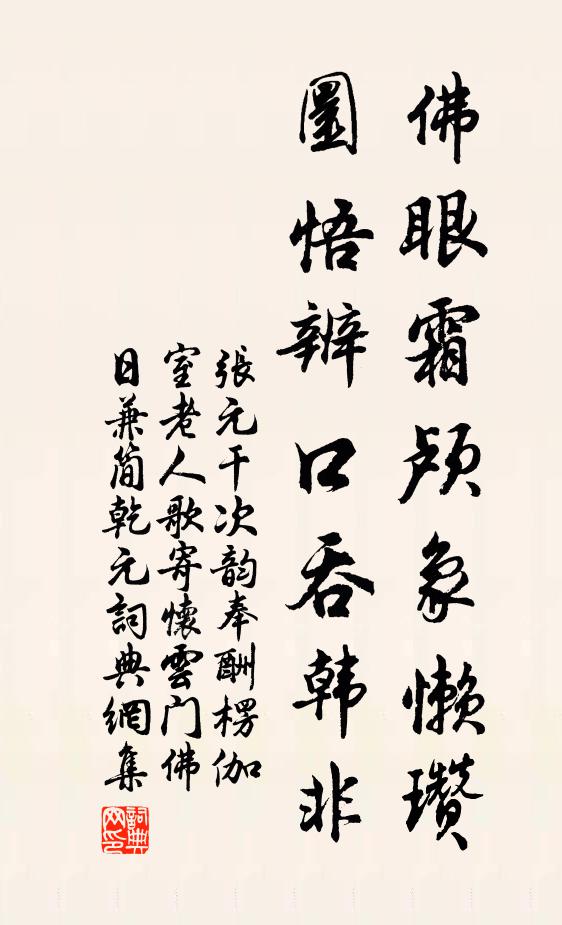 佛眼霜颅象懒瓒
圜悟辨口吞韩非
張元干次韵奉酬楞伽
室老人歌寄懷雲门佛
日兼简乾元詞典網集
詞典网印